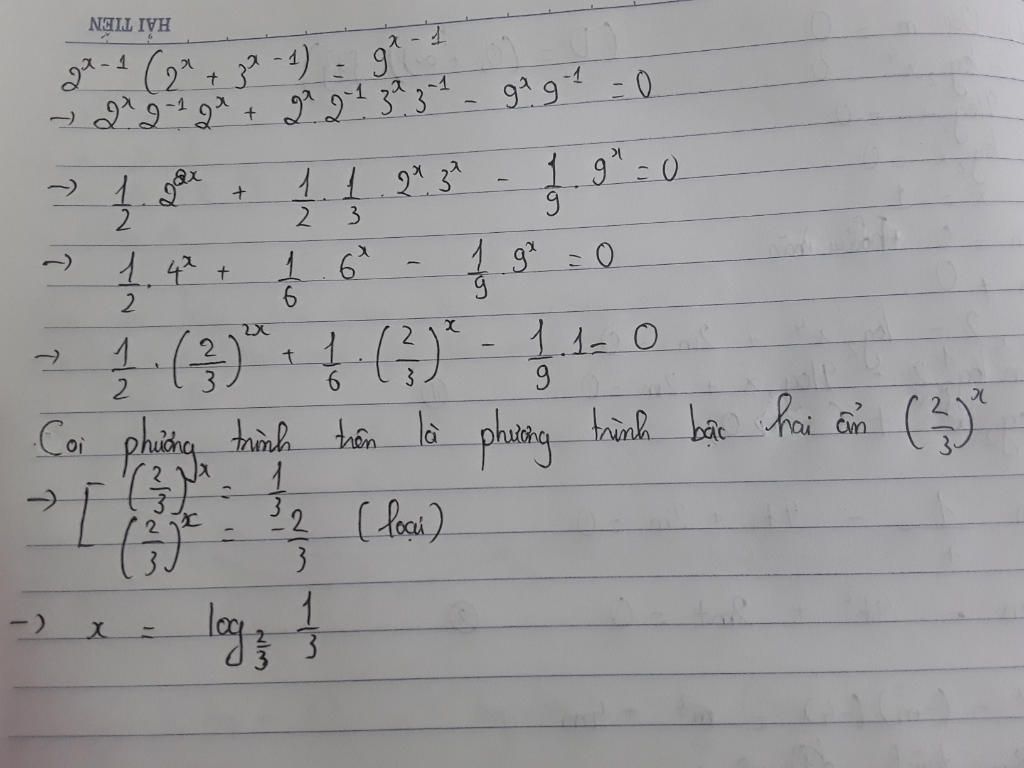 HẢI TIẾN
2^{x-1} (2^x + 3^{x-1}) = 9^{x-1}
→ 2^x . 2^{-1} . 2^x + 2^x . 2^{-1} . 3^x . 3^{-1} - 9^x . 9^{-1} = 0
→ 1/2 . 2^{2x} + 1/2 . 1/3 . 2^x . 3^x - 1/9 . 9^x = 0
→ 1/2 . 4^x + 1/6 . 6^x - 1/9 . 9^x = 0
→ 1/2 . (2/3)^{2x} + 1/6 . (2/3)^x - 1/9 . 1 = 0
Coi phương trình trên là phương trình bậc hai ẩn (2/3)^x
→ [ (2/3)^x = 1/3
(2/3)^x = -2/3 (loại)
→ x = log_{2/3} 1/3